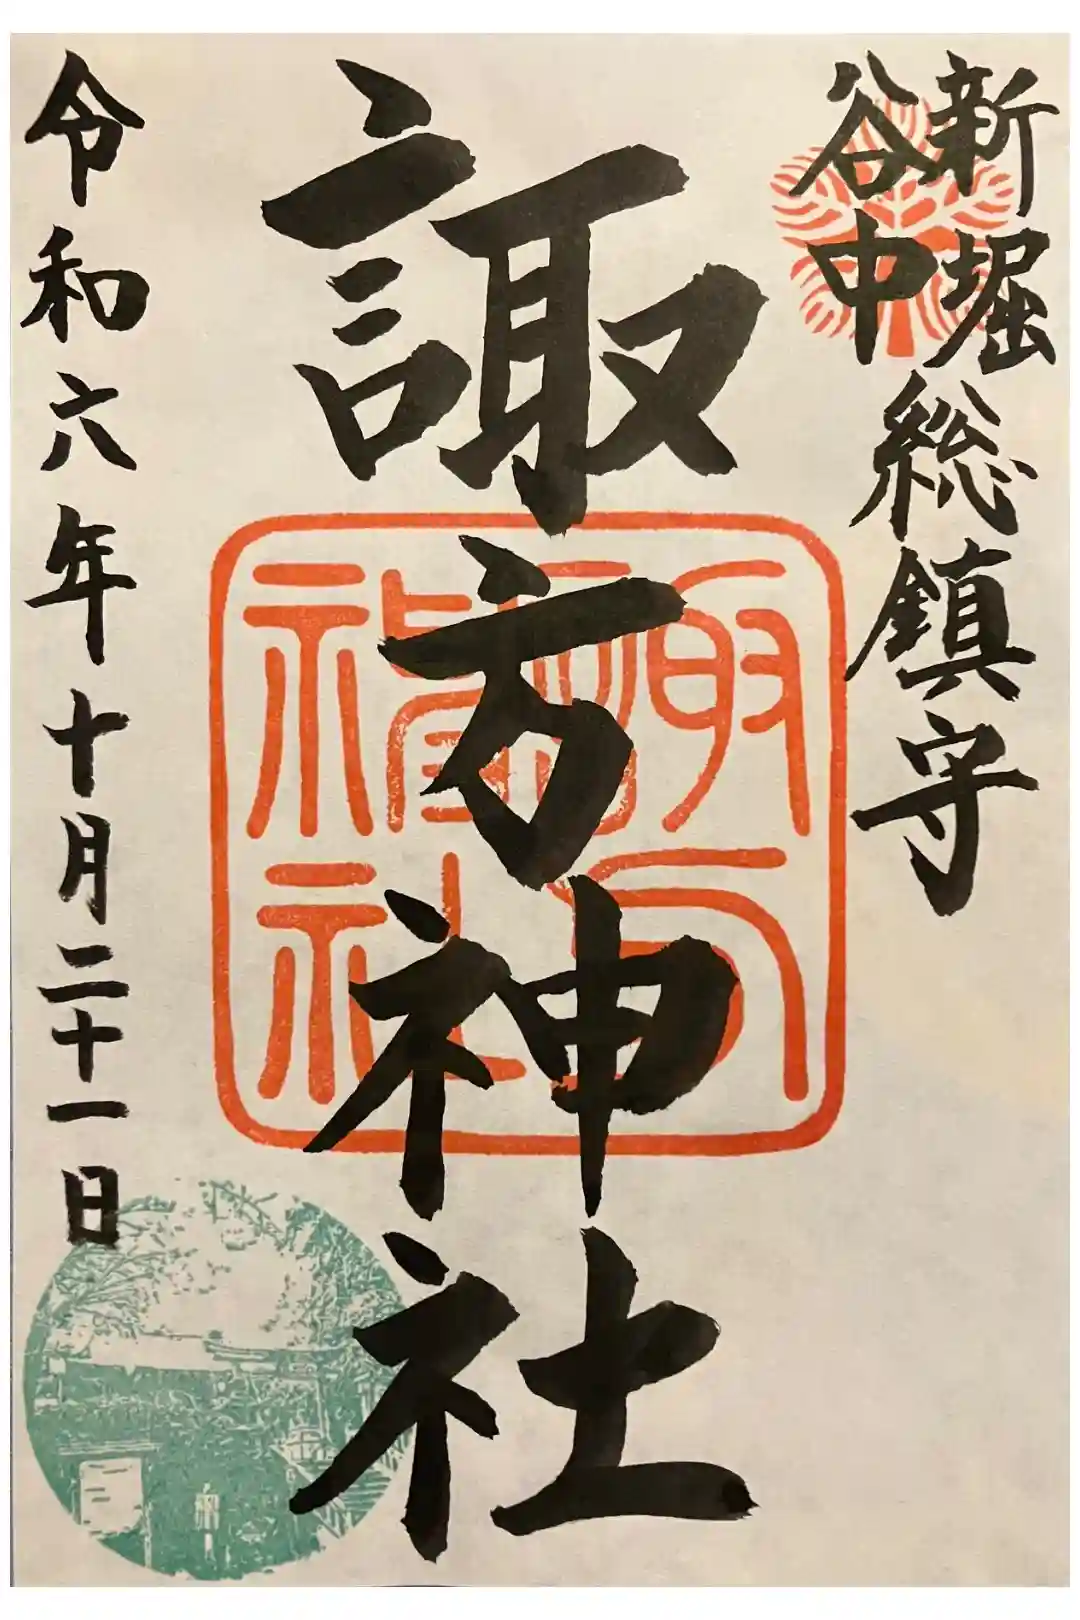 新堀
谷中
総鎮守
諏方神社
諏方
神社
令和六年十月二十一日